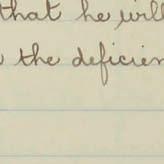 that he will
the deficien